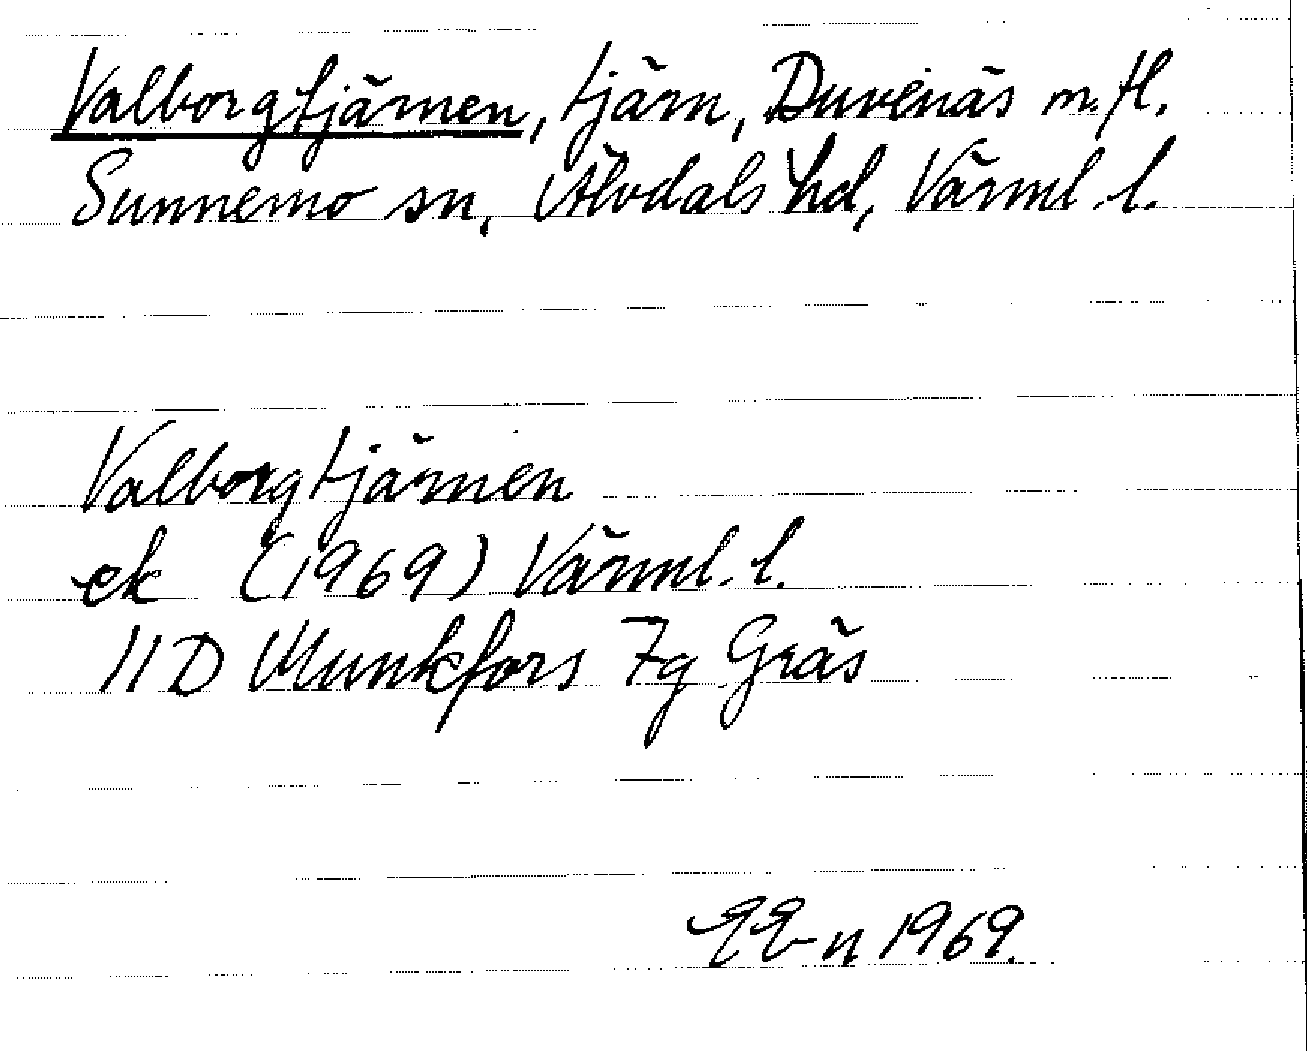 Valborgtjärnen, tjärn, Duvenäs m. fl.
Sunnemo sn, Älvdals hd, Värml. l.
Valborgtjärnen
ek (1969) Värml. l.
11D Munkfors 7g Gräs
1969.